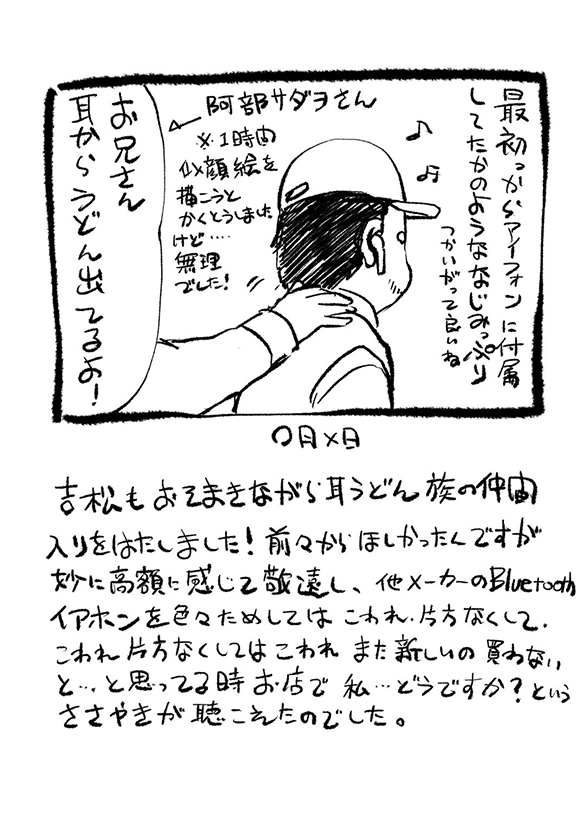 最初っからアイフォンに付属
してたかのようななじみっぷり
つかいがって良いね
阿部サダヲさん
※1時間
似顔絵を
描こうと
かくとうしました
けど‥‥
無理
でした!
お兄さん
耳からうどん出てるよ!
〇月×日
吉松もおそまきながら耳うどん族の仲間
入りをはたしました!前々からほしかったんですが
妙に高額に感じて敬遠し、他メーカーのBluetooth
イアホンを色々ためしてはこわれ、片方なくして、
こわれ片方なくしてはこわれまた新しいの買わない
と…と思ってる時お店で私…どうですか?という
ささやきが聴こえたのでした。